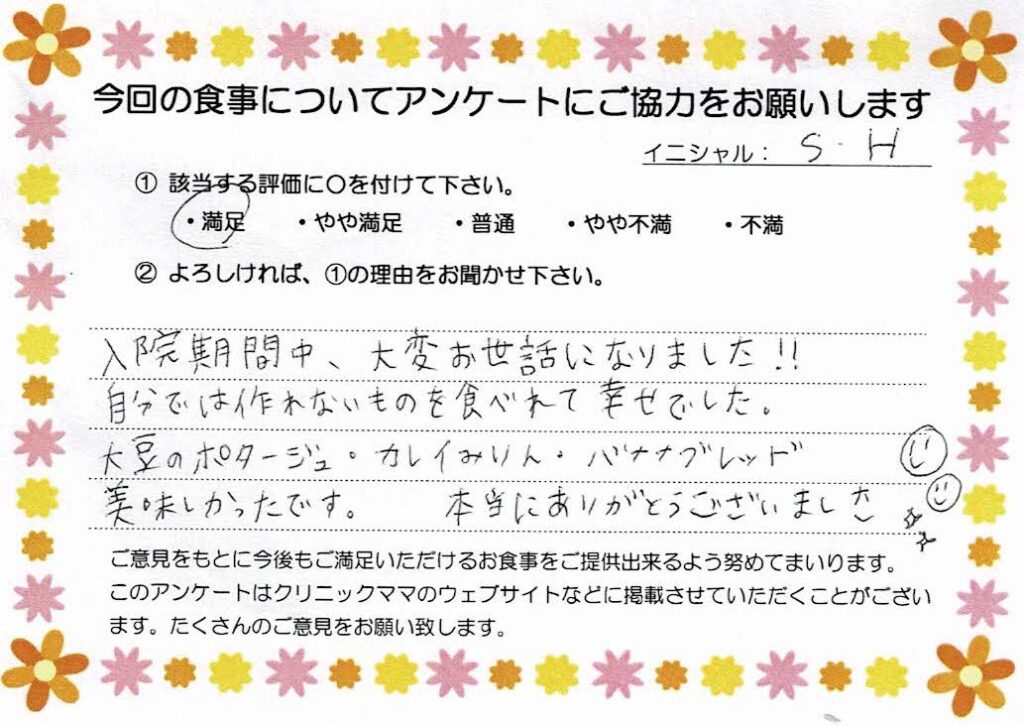 今回の食事についてアンケートにご協力をお願いします
イニシャル： S・H
① 該当する評価に〇を付けて下さい。
・満足　・やや満足　・普通　・やや不満　・不満
② よろしければ、①の理由をお聞かせ下さい。
入院期間中、大変お世話になりました!!
自分では作れないものを食べれて幸せでした。
大豆のポタージュ・カレイみりん・バナナブレッド
美味しかったです。　本当にありがとうございました
ご意見をもとに今後もご満足いただけるお食事をご提供出来るよう努めてまいります。
このアンケートはクリニックママのウェブサイトなどに掲載させていただくことがござい
ます。たくさんのご意見をお願い致します。